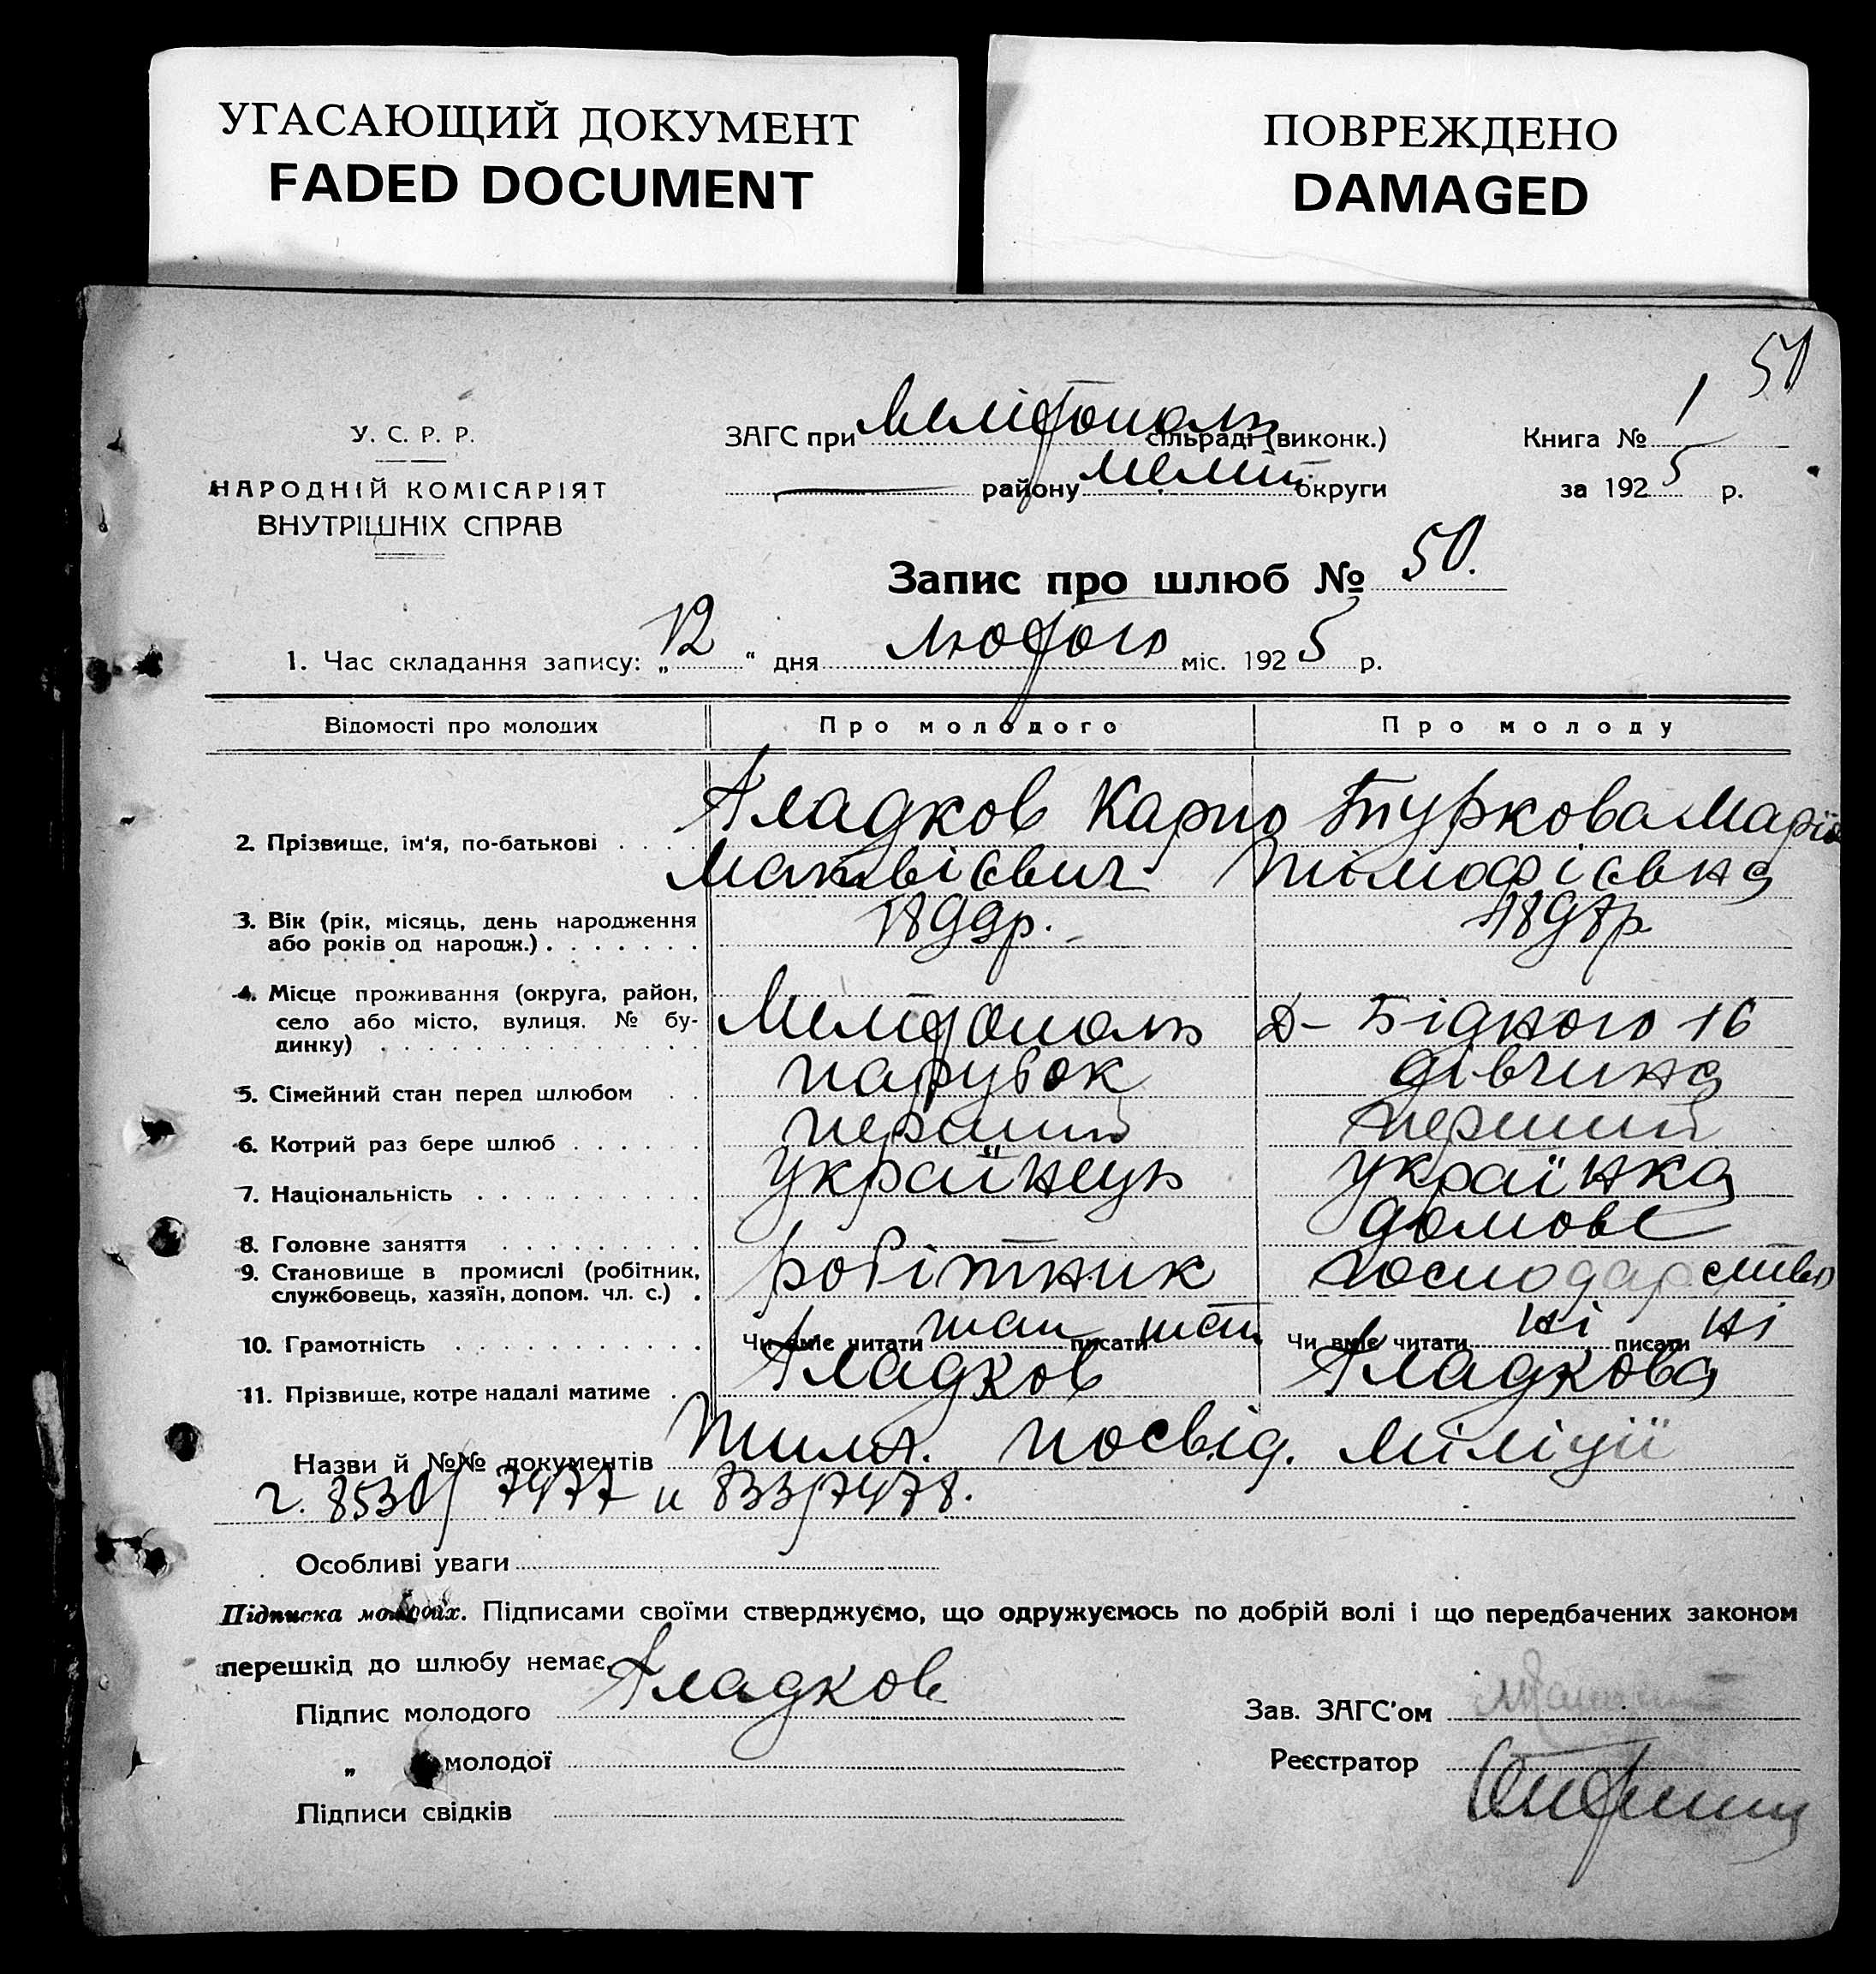 УГАСАЮЩИЙ ДОКУМЕНТ
FADED DOCUMENT
ПОВРЕЖДЕНО
DAMAGED
50
У. С. Р. Р.
НАРОДНІЙ КОМІСАРІЯТ
ВНУТРІШНІХ СПРАВ
ЗАГС при Мелітополь сільраді (виконк.)
— району Меліт. округи
Книга № 1
за 1925 р.
Запис про шлюб № 50.
1. Час складання запису: „12“ дня лютого міс. 1925 р.
Відомості про молодих Про молодого Про молоду
2. Прізвище, ім'я, по-батькові . . . . Гладков Карпо Матвієвич Туркова Марія Тімофієвна
3. Вік (рік, місяць, день народження
або років од народж.) . . . . . . . 1899р. 1898р.
4. Місце проживання (округа, район,
село або місто, вулиця. № бу-
динку) . . . . Мелітополь Д-Бідного 16
5. Сімейний стан перед шлюбом . . парубок дівчина
6. Котрий раз бере шлюб . . . . . . перший перший
7. Національність . . . . . . . . . українець українка
8. Головне заняття . . . . . . . . . домове
9. Становище в промислі (робітник,
службовець, хазяїн, допом. чл. с.) . робітник господарство
10. Грамотність . . . . . . . . . . Чи вміє читати так писати так Чи вміє читати ні писати ні
11. Прізвище, котре надалі матиме . Гладков Гладкова
Назви й №№ документів Тимч. посвід. міліції
ч. 8530/7477 и 833/7478.
Особливі уваги
Підписка молодих. Підписами своїми стверджуємо, що одружуємось по добрій волі і що передбачених законом
перешкід до шлюбу немає.
Підпис молодого Гладков
„ молодої
Підписи свідків
Зав. ЗАГС'ом
Реєстратор